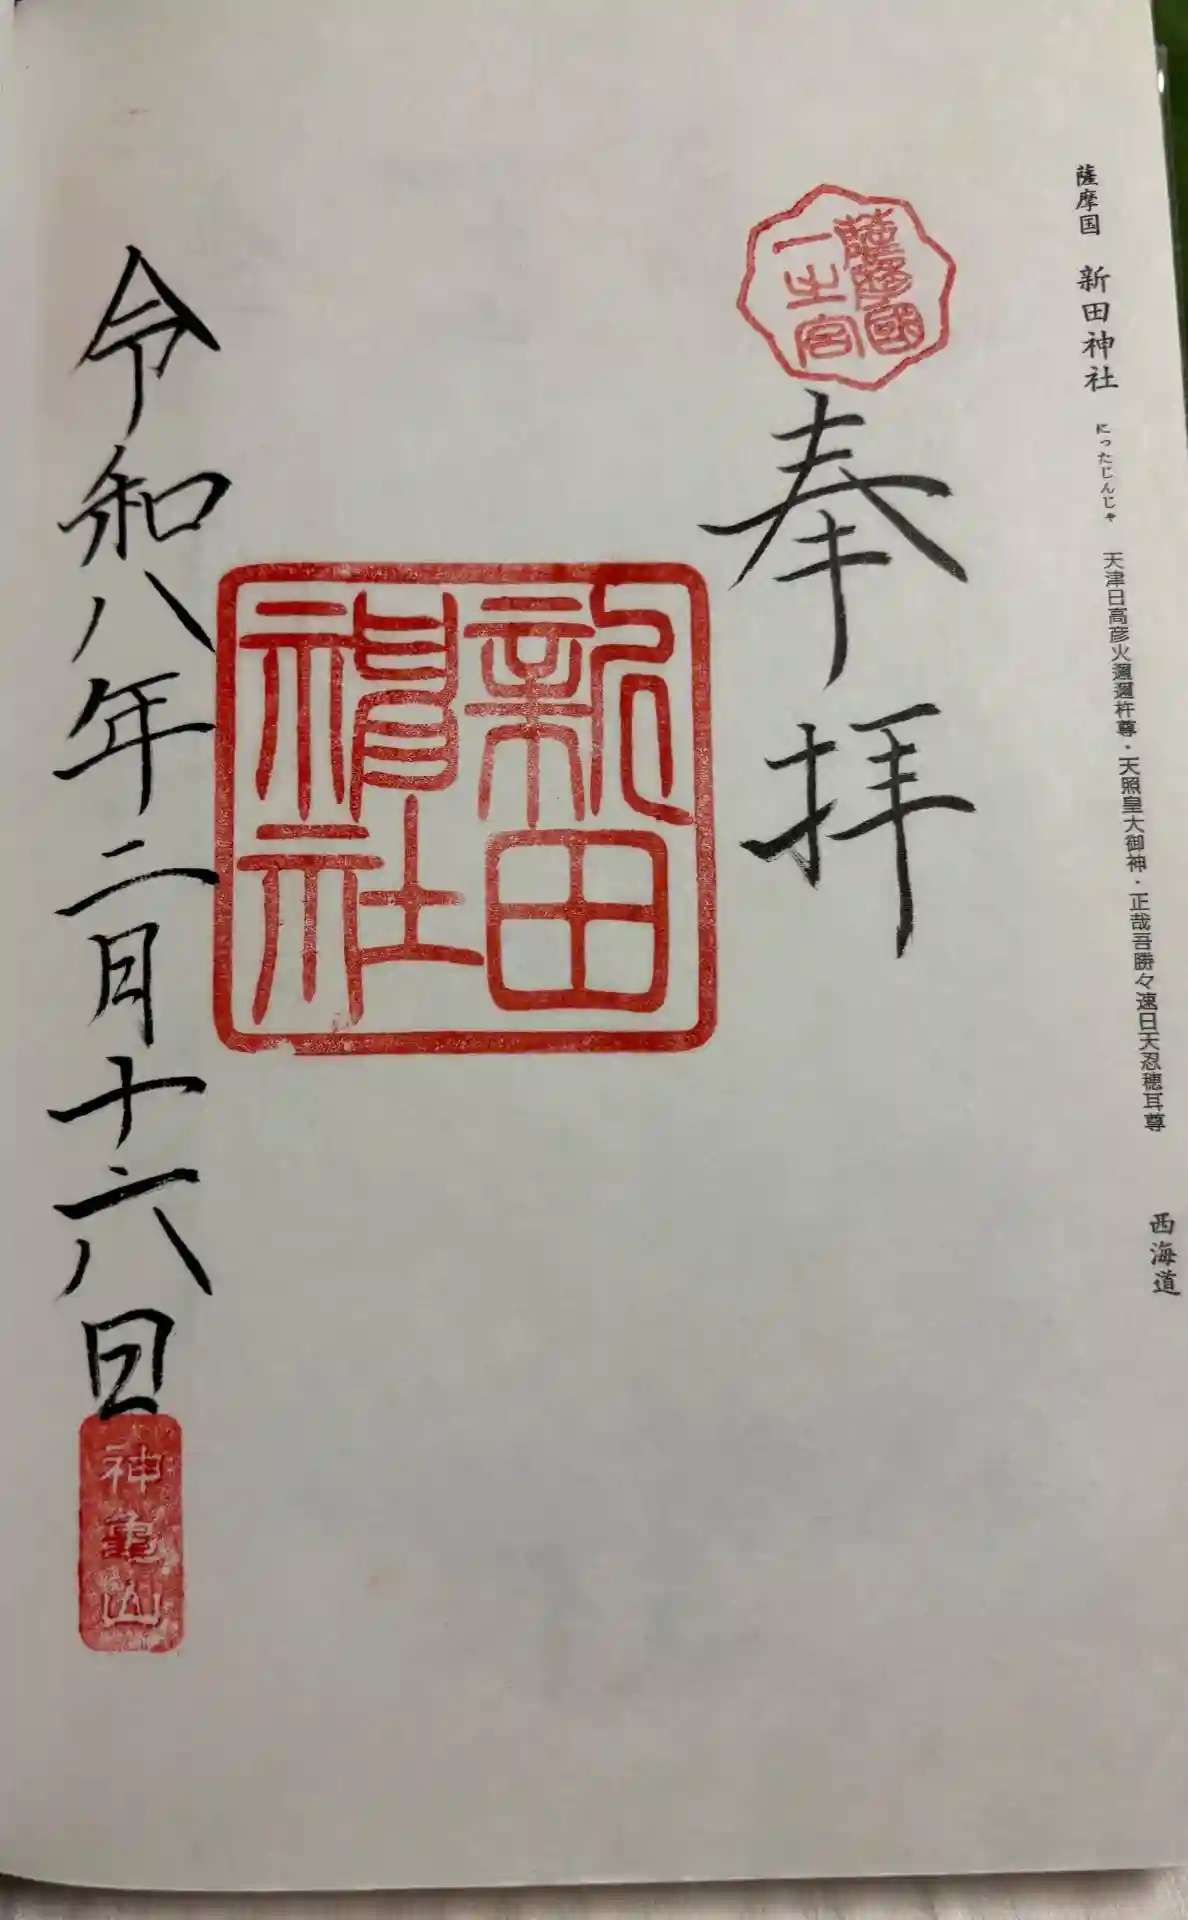 薩摩国 新田神社 にったじんじゃ 天津日高彦火邇邇杵尊・天照皇大御神・正哉吾勝々速日天忍穂耳尊 西海道
薩摩國
一之宮
奉拝
新田
神社
令和八年二月十六日
神亀山